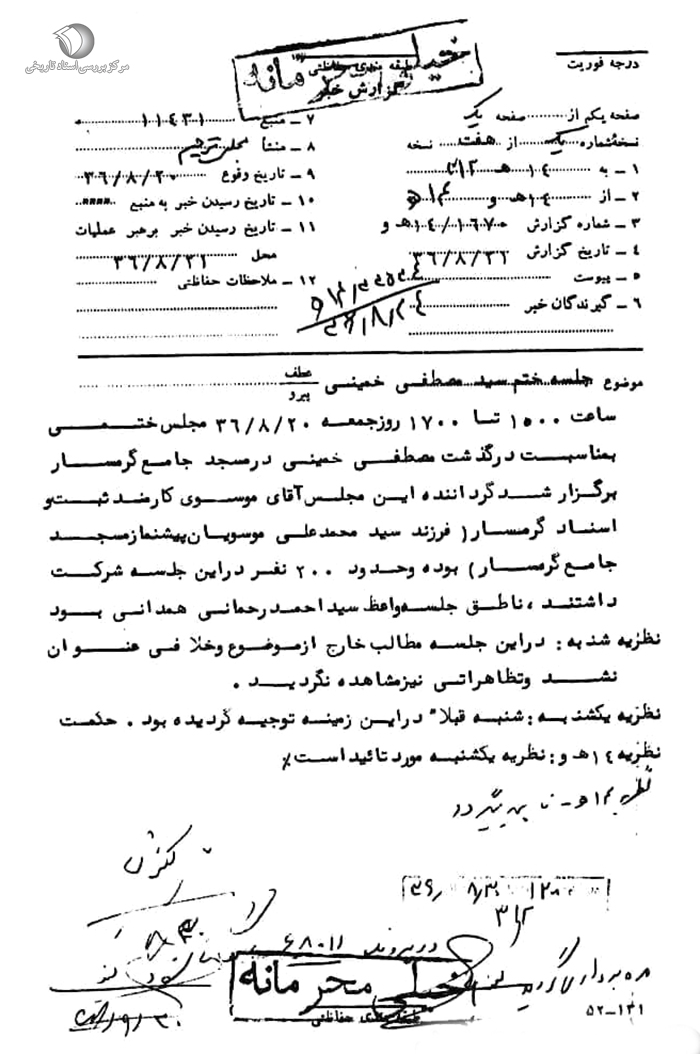 مرکز بررسی اسناد تاریخی
درجه فوریت
طبقه بندی حفاظتی
خیلی محرمانه
گزارش خبر
صفحه یکم از صفحه یک
نسخه شماره یک از هفت نسخه
۱ ـ به ۳۱۲
۲ ـ از ۱۴ هـ و
۳ ـ شماره گزارش ۱۴/۱۰۶۷۰ هـ و
۴ ـ تاریخ گزارش ۳۶/۸/۲۱
۵ ـ پیوست
۶ ـ گیرندگان خبر
۷ ـ منبع ۱۱۴۳۱
۸ ـ منشأ مجلس ترحیم
۹ ـ تاریخ وقوع ۳۶/۸/۲۰
۱۰ ـ تاریخ رسیدن خبر به منبع
۱۱ ـ تاریخ رسیدن خبر برهبر عملیات
محل ۳۶/۸/۲۱
۱۲ ـ ملاحظات حفاظتی
موضوع جلسه ختم سید مصطفی خمینی عطف
پیرو
ساعت ۱۵۰۰ تا ۱۷۰۰ روزجمعه ۳۶/۸/۲۰ مجلس ختمی
بمناسبت درگذشت مصطفی خمینی درمسجد جامع گرمسار
برگزار شدگرداننده این مجلس آقای موسوی کارمند ثبت و
اسناد گرمسار( فرزند سید محمدعلی موسویان پیشنمازمسجد
جامع گرمسار) بوده وحدود ۲۰۰ نفر دراین جلسه شرکت
داشتند ، ناطق جلسه واعظ سید احمد رحمانی همدانی بود
نظریه شنبه : دراین جلسه مطالب خارج ازموضوع وخلافی عنوان
نشد وتظاهراتی نیزمشاهده نگردید .
نظریه یکشنبه : شنبه قبلا" دراین زمینه توجیه گردیده بود . حکمت
نظریه ۱۴ هـ و : نظریه یکشنبه مورد تائید است٪
در پرونده ۶۸۰۱۱
خیلی محرمانه
طبقه بندی حفاظتی
۵۲-۱۳۱